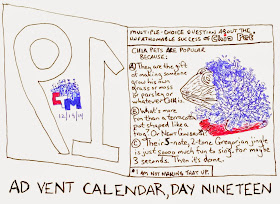 MULTIPLE-CHOICE QUESTION ABOUT THE
UNFATHOMABLE SUCCESS OF Chia Pet
CHIA PETS ARE POPULAR
BECAUSE:
A) They are the gift
of making someone
grow his own
grass or moss
or parsley or
whatever
B) What's more
fun than a terracotta
pot shaped like a
frog? Or Newt Gingrich?
C) Their 5-note, 2-tone Gregorian jingle
is just soooo much fun to sing. For maybe
3 seconds. Then it's done.
* I AM NOT MAKING THAT UP.
PI
12/19/
AD VENT CALENDAR, DAY NINETEEN